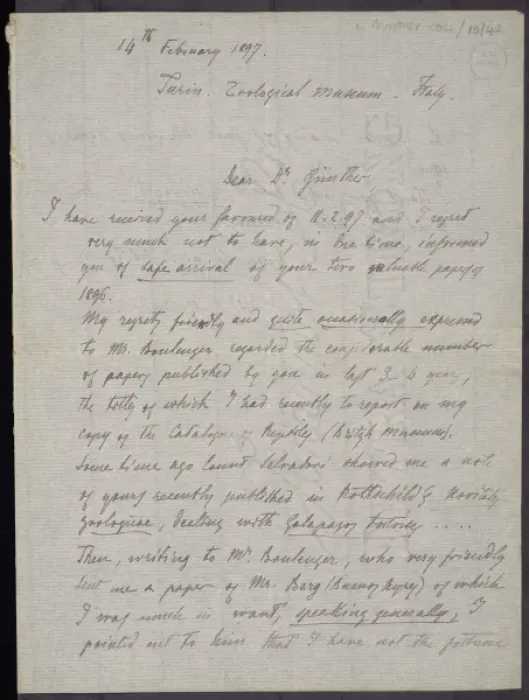 14th February 1897.
Turin. Zoological Museum - Italy.
Dear Dr. Günther
I have received your favoured of 11.2.97 and I regret
very much not to have, in due time, informed
you of safe arrival of your two valuable papers
1896.
My regrets friendly and quite occasionally expressed
to Mr. Boulenger regarded the considerable number
of papers published by you in last 3-4 years,
the of which I had recently to report on my
copy of the Catalogue of Reptiles (British Museum).
Some time ago Count Salvadori showed me a note
of yours recently published in Rothschild's Novitates
Zoologicae, dealing with Galapagos tortoises .....
Then, writing to Mr. Boulenger, who very friendly
sent me a paper of Mr. Berg (Buenos Ayres) of which
I was much in want, speaking generally, I
pointed out to him that I have not the fortune